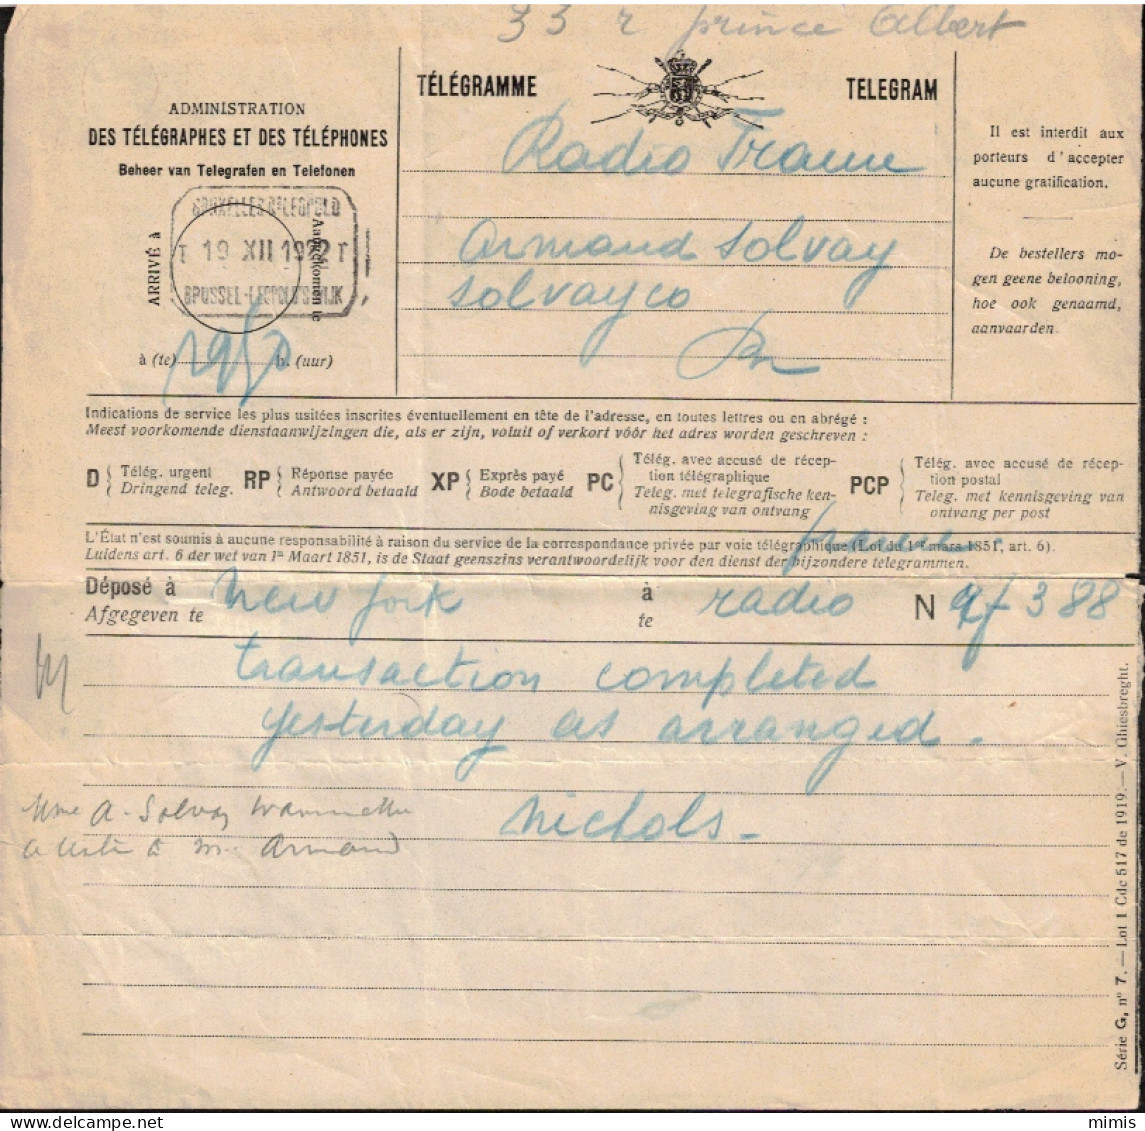 33 r prince Albert
TÉLÉGRAMME
TELEGRAM
ADMINISTRATION
DES TÉLÉGRAPHES ET DES TÉLÉPHONES
Beheer van Telegrafen en Telefonen
BRUXELLES QR LEOPOLD
T 19 XII 1922 T
BRUSSEL-LEOPOLD'S WIJK
ARRIVÉ à
Aangekomen te
à (te) h. (uur)
Radio France
Armand Solvay
Solvayco
Il est interdit aux
porteurs d'accepter
aucune gratification.
De bestellers mo-
gen geene belooning,
hoe ook genaamd,
aanvaarden.
Indications de service les plus usitées inscrites éventuellement en tête de l'adresse, en toutes lettres ou en abrégé :
Meest voorkomende dienstaanwijzingen die, als er zijn, voluit of verkort vóór het adres worden geschreven :
D { Télég. urgent
Dringend teleg.
RP { Réponse payée
Antwoord betaald
XP { Exprès payé
Bode betaald
PC { Télég. avec accusé de récep-
tion télégraphique
Teleg. met telegrafische ken-
nisgeving van ontvang
PCP { Télég. avec accusé de récep-
tion postal
Teleg. met kennisgeving van
ontvang per post
L'État n'est soumis à aucune responsabilité à raison du service de la correspondance privée par voie télégraphique (Loi du 1er mars 1851, art. 6).
Luidens art. 6 der wet van 1n Maart 1851, is de Staat geenszins verantwoordelijk voor den dienst der bijzondere telegrammen.
Déposé à New York à radio france N 388
Afgegeven te te
transaction completed
yesterday as arranged.
Nichols -
Mme A. Solvay
à M. Armand
Série G, n° 7. — Lot 1 Cde 517 de 1919. — V. Ghiesbreght.
mimis